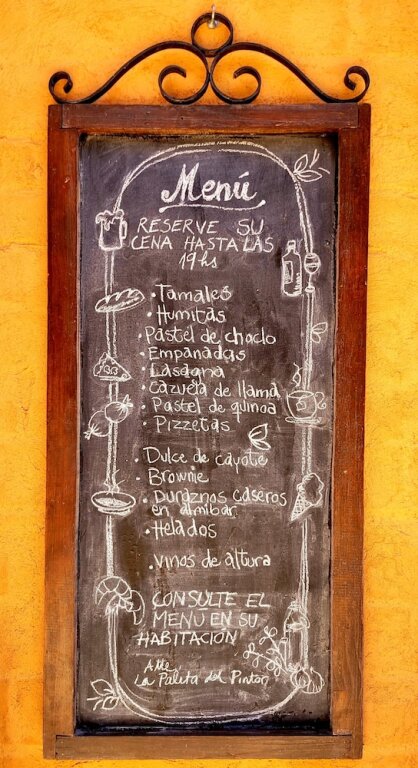 Menú
RESERVE SU
CENA HASTA LAS
19hs
• Tamales
• Humitas
• Pastel de choclo
• Empanadas
• Lasagna
• Cazuela de llama
• Pastel de quinoa
• Pizzetas
• Dulce de cayote
• Brownie
• Duraznos caseros
en almíbar
• Helados
• Vinos de altura
CONSULTE EL
MENÚ EN SU
HABITACIÓN
La Paleta del Pintor